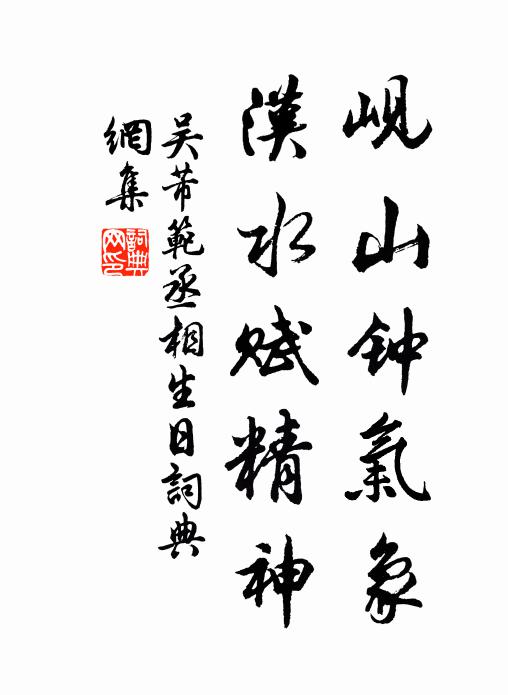 岘山钟氣象
漢水赋精神
吴芾範丞相生日詞典
網集
詞典
网印